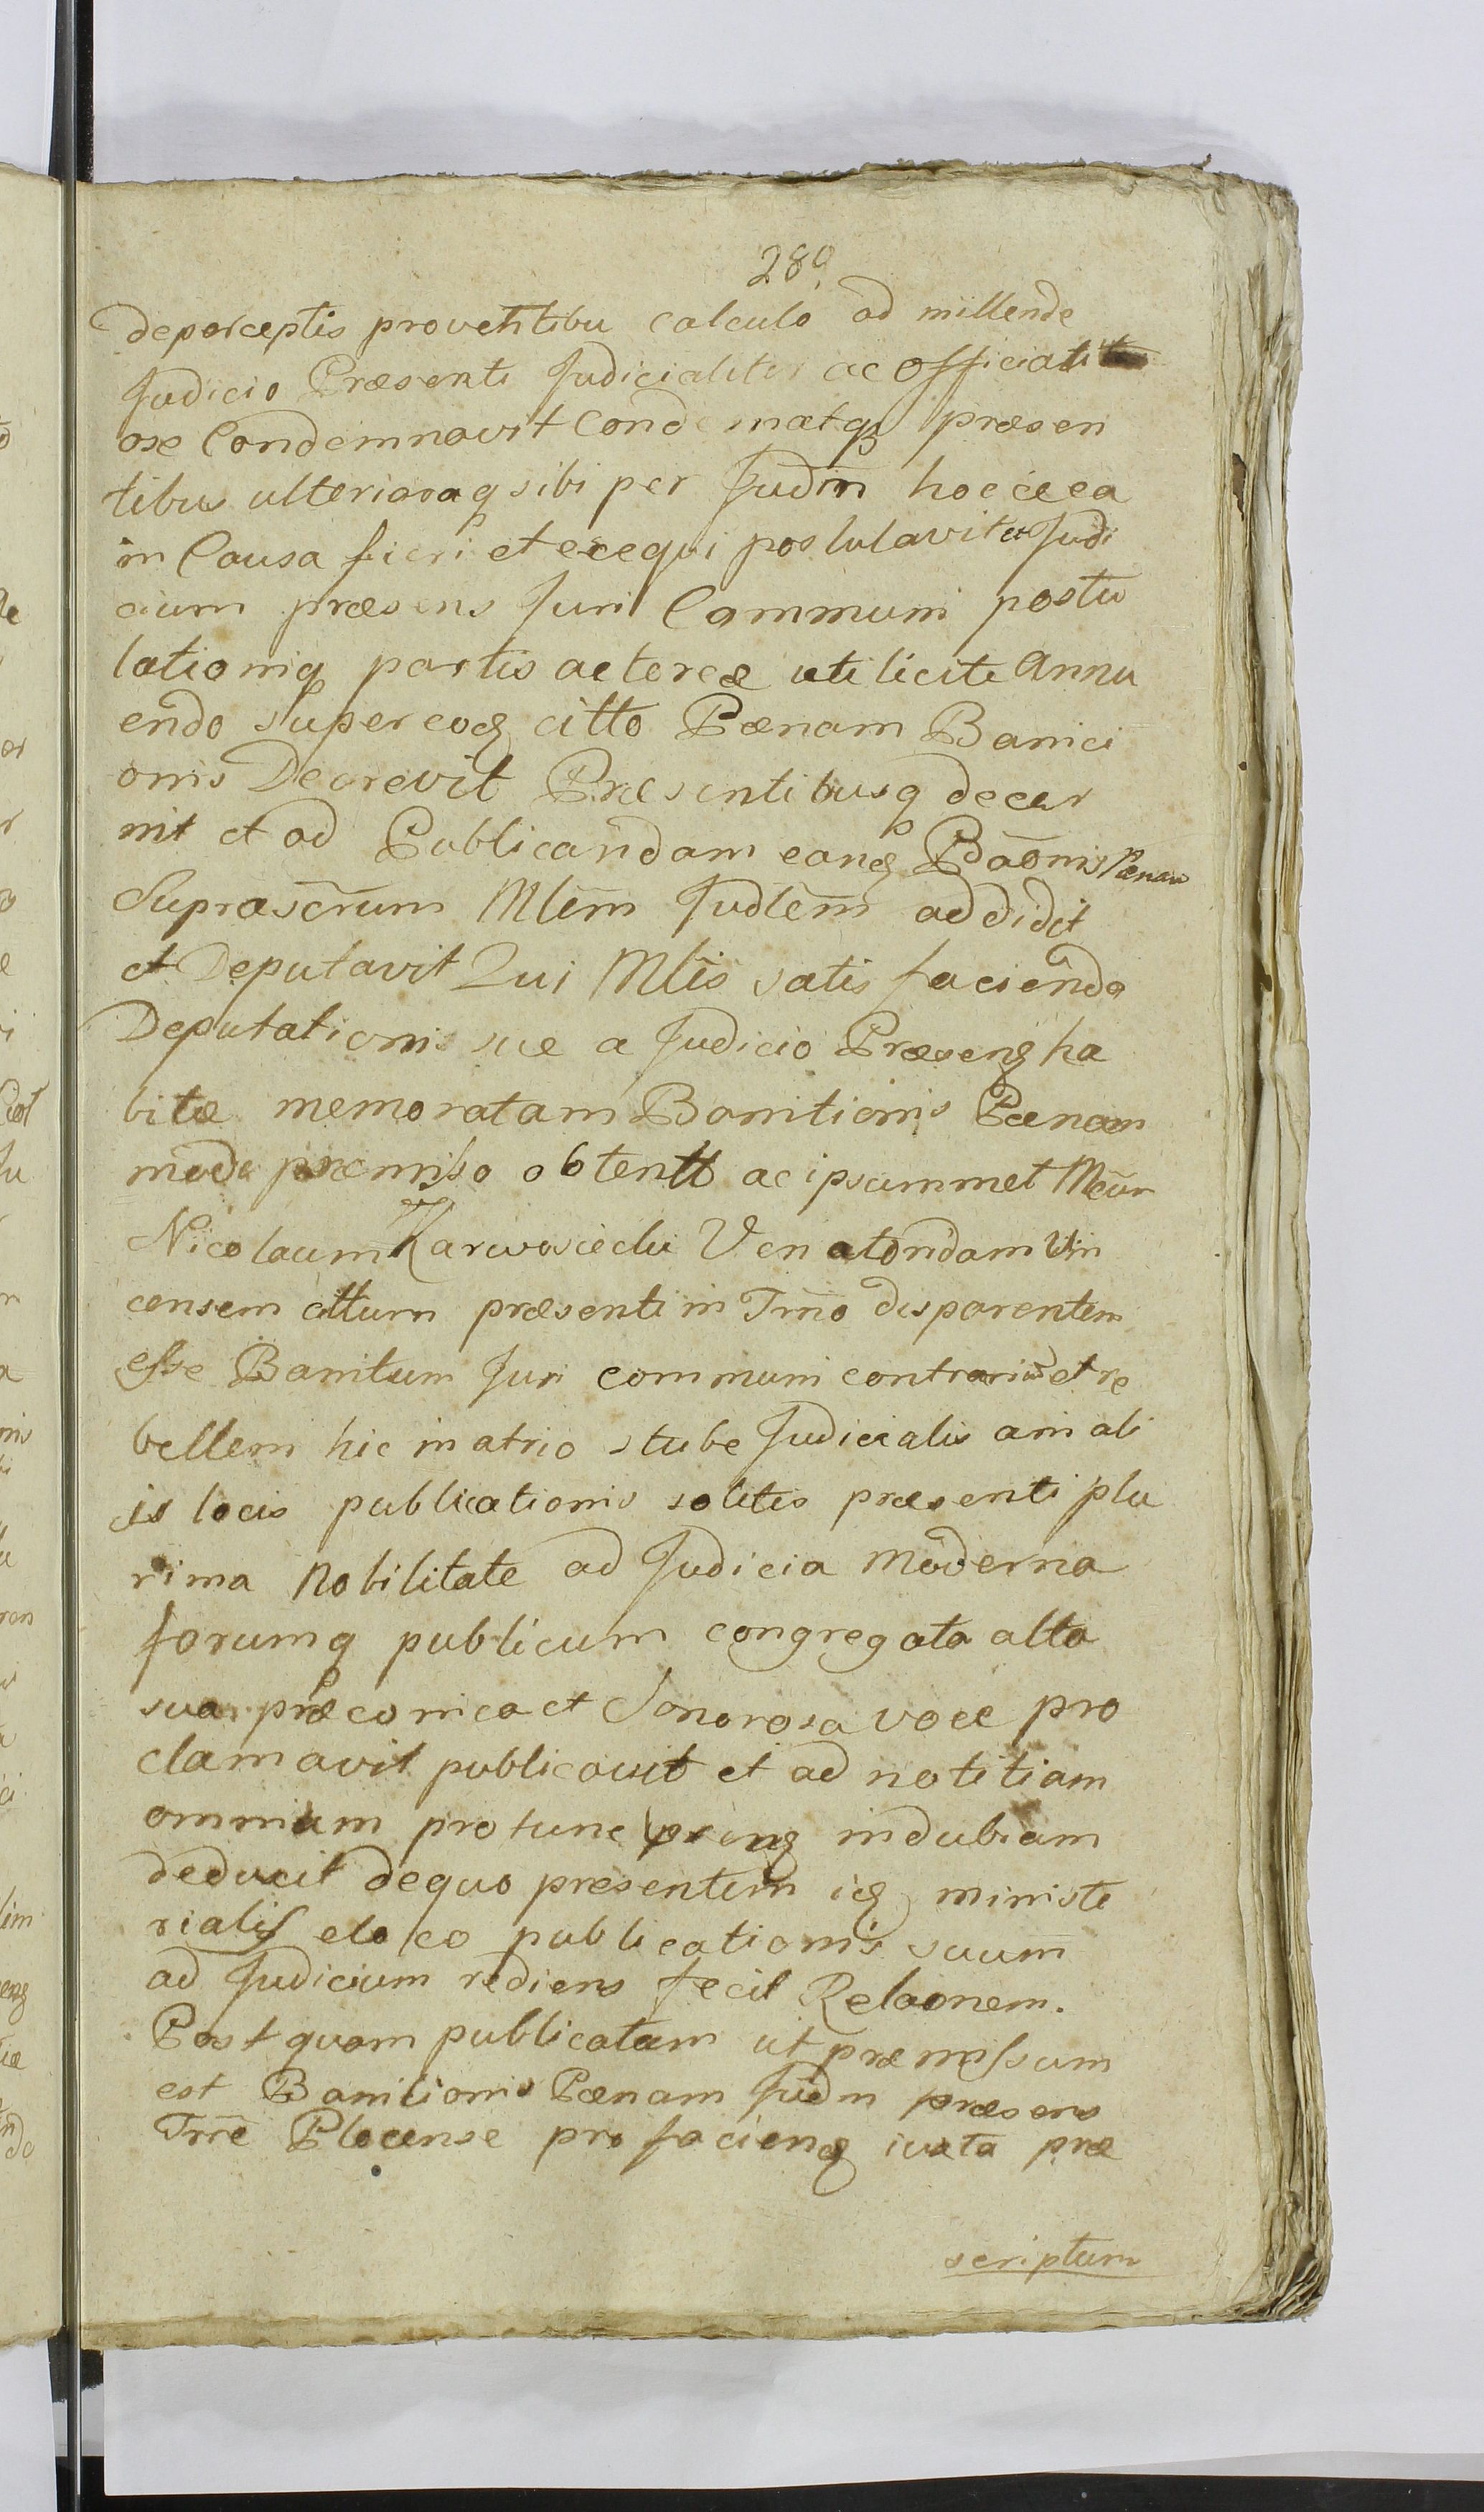 289
deperceptis proventibu calculo ad millende
Judicio Præsenti Judicialiter ac Officialit
ose Condemnavit Condemnatq præsen
tibus ulterioraq sibi per Judm̄ hocce ea
in Causa fieri et exequi postulavit et Judi
cium præsens Juri Communi postu
lationiq partis actoreæ uti licite Annu
endo super eoq citto Pœnam Banici
onis Decrevit Præsentibusq decer
nit et ad Publicandam eanq Bãõnis Pænam
Supræscr̄um Mlem̄ Judlem̄ addidit
et Deputavit Qui Mlis̄ satis facienda
Deputationis suæ a Judicio Præsenq ha
bitæ memoratam Banitionis Pœnam
modo præmisso obtentt ac ipsummet Mcūm
Nicolaum Karwosiecki Venatoridam Win
censem cittum præsenti in Tmīno disparentem
esse Banitum Juri communi contrariū et re
bellem hic in atrio stubæ Judicialis ani ali
is locis publicationis solitis præsenti plu
rima Nobilitate ad Judicia moderna
forumq publicum congregata alta
sua præconica et Sonorosa voce pro
clamavit publicavit et ad notitiam
omnium pro tunc præng indubiam
deduxit dequo præsentem iq ministe
rialis eloco publicationis suum
ad Judicium rediens fecit Relãonem.
Post quam publicatam ut præmissum
est Banitionis Pœnam Judm præsens
Trr̄e Plocense pro facienq iuxta præ
scriptum